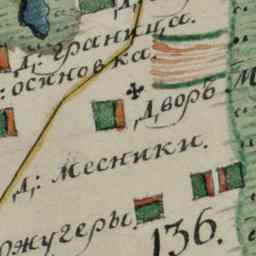 Д: граница.
Д: осиновка.
Дворъ М
Д: месники.
ожугеры
136.